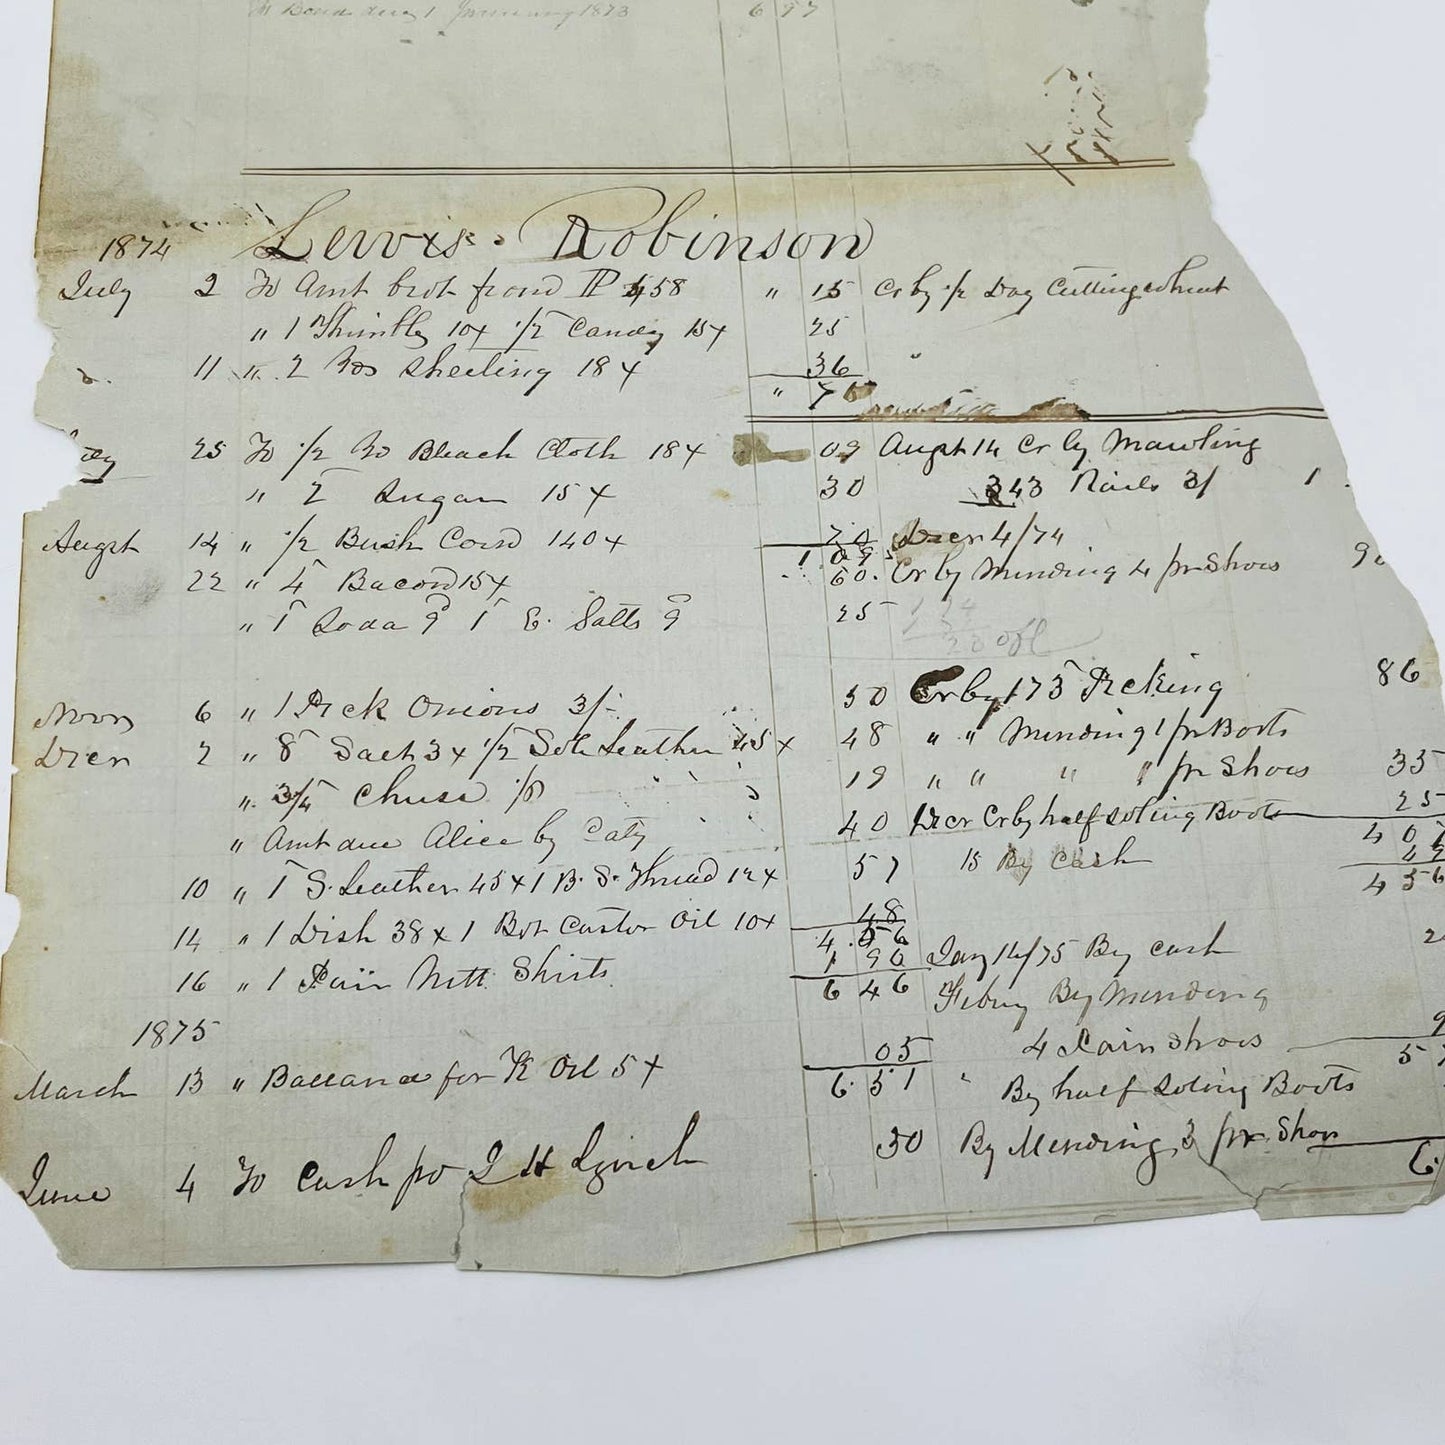 1873 6 97
Lewis Robinson
1874
July 2 To Amt brot from P 458 " 15 Cr by 1/2 Day Cutting wheat
" 1 Thimble 10x 1/2 Candy 15x 25
11 " 2 Yds Sheeting 18x 36 "
" 76
25 To 1/2 Yd Bleach Cloth 18x 09 Augst 14 Cr by Mawling
" 2 Sugar 15x 30 343 Rails 3/ 1
Augst 14 " 1/2 Bush Corn 140x 70 Decr 4/74
1 09
22 " 4 Bacon 15x 60 Cr by Mending 4 pr Shoes 90
" 1 Soda 9 1 E. Salts 9 25
Novr 6 " 1 Peck Onions 3/- 50 Cr by 173 Picking 86
Decr 2 " 8 Salt 3x 1/2 Sole Leather 45x 48 " " Mending 1 pr Boots
" 3/4 Chese 19 " " " " pr Shoes 35
" Amt due Alice by Caty 40 Decr Cr by half Soling Boots 25
4 0
10 " 1 S. Leather 45x 1 B. S. Thread 12x 57 15 By Cash
4 56
14 " 1 Dish 38x 1 Bot Castor Oil 10x 48
4 56
16 " 1 Pair Nett Shirts 1 90 Jany 14/75 By cash
6 46 Febuy By Mending
1875 4 Pair Shoes
March 13 " Ballance for K Oil 5x 05
6 51 By half Soling Boots
30 By Mending 3 pr Shoes
June 4 To Cash pd J H Lynch